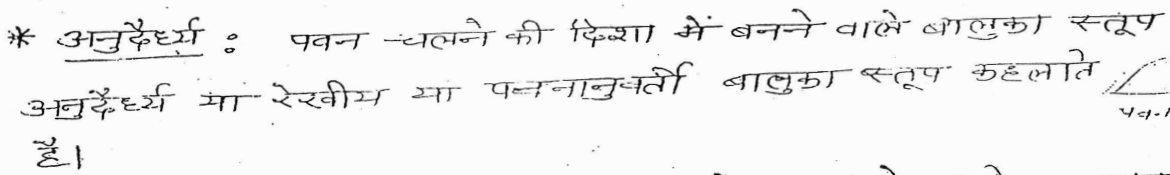 * अनुदैर्ध्य : पवन चलने की दिशा में बनने वाले बालुका स्तूप
अनुदैर्ध्य या रेखीय या पवनानुवर्ती बालुका स्तूप कहलाते
है।